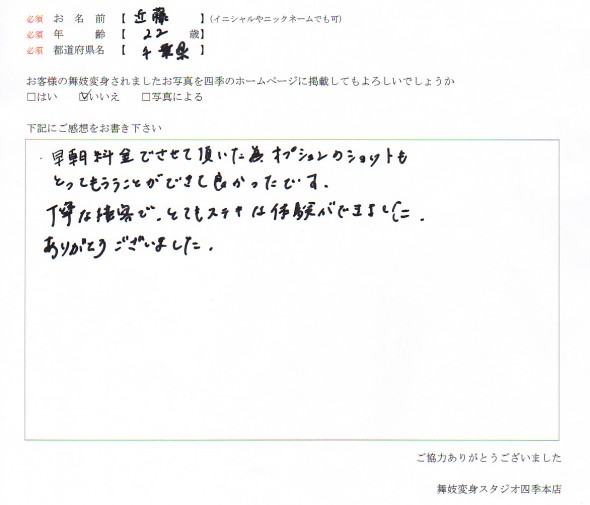 必須 お名前 【 近藤 】(イニシャルやニックネームでも可)
必須 年齢 【 22 歳】
必須 都道府県名 【 千葉県 】
お客様の舞妓変身されましたお写真を四季のホームページに掲載してもよろしいでしょうか
□はい ☑いいえ □写真による
下記にご感想をお書き下さい
・早朝料金でさせて頂いた為オプションのショットも
とってもらうことができて良かったです。
丁寧な接客で、とてもステキな体験ができました。
ありがとうございました。
ご協力ありがとうございました
舞妓変身スタジオ四季本店